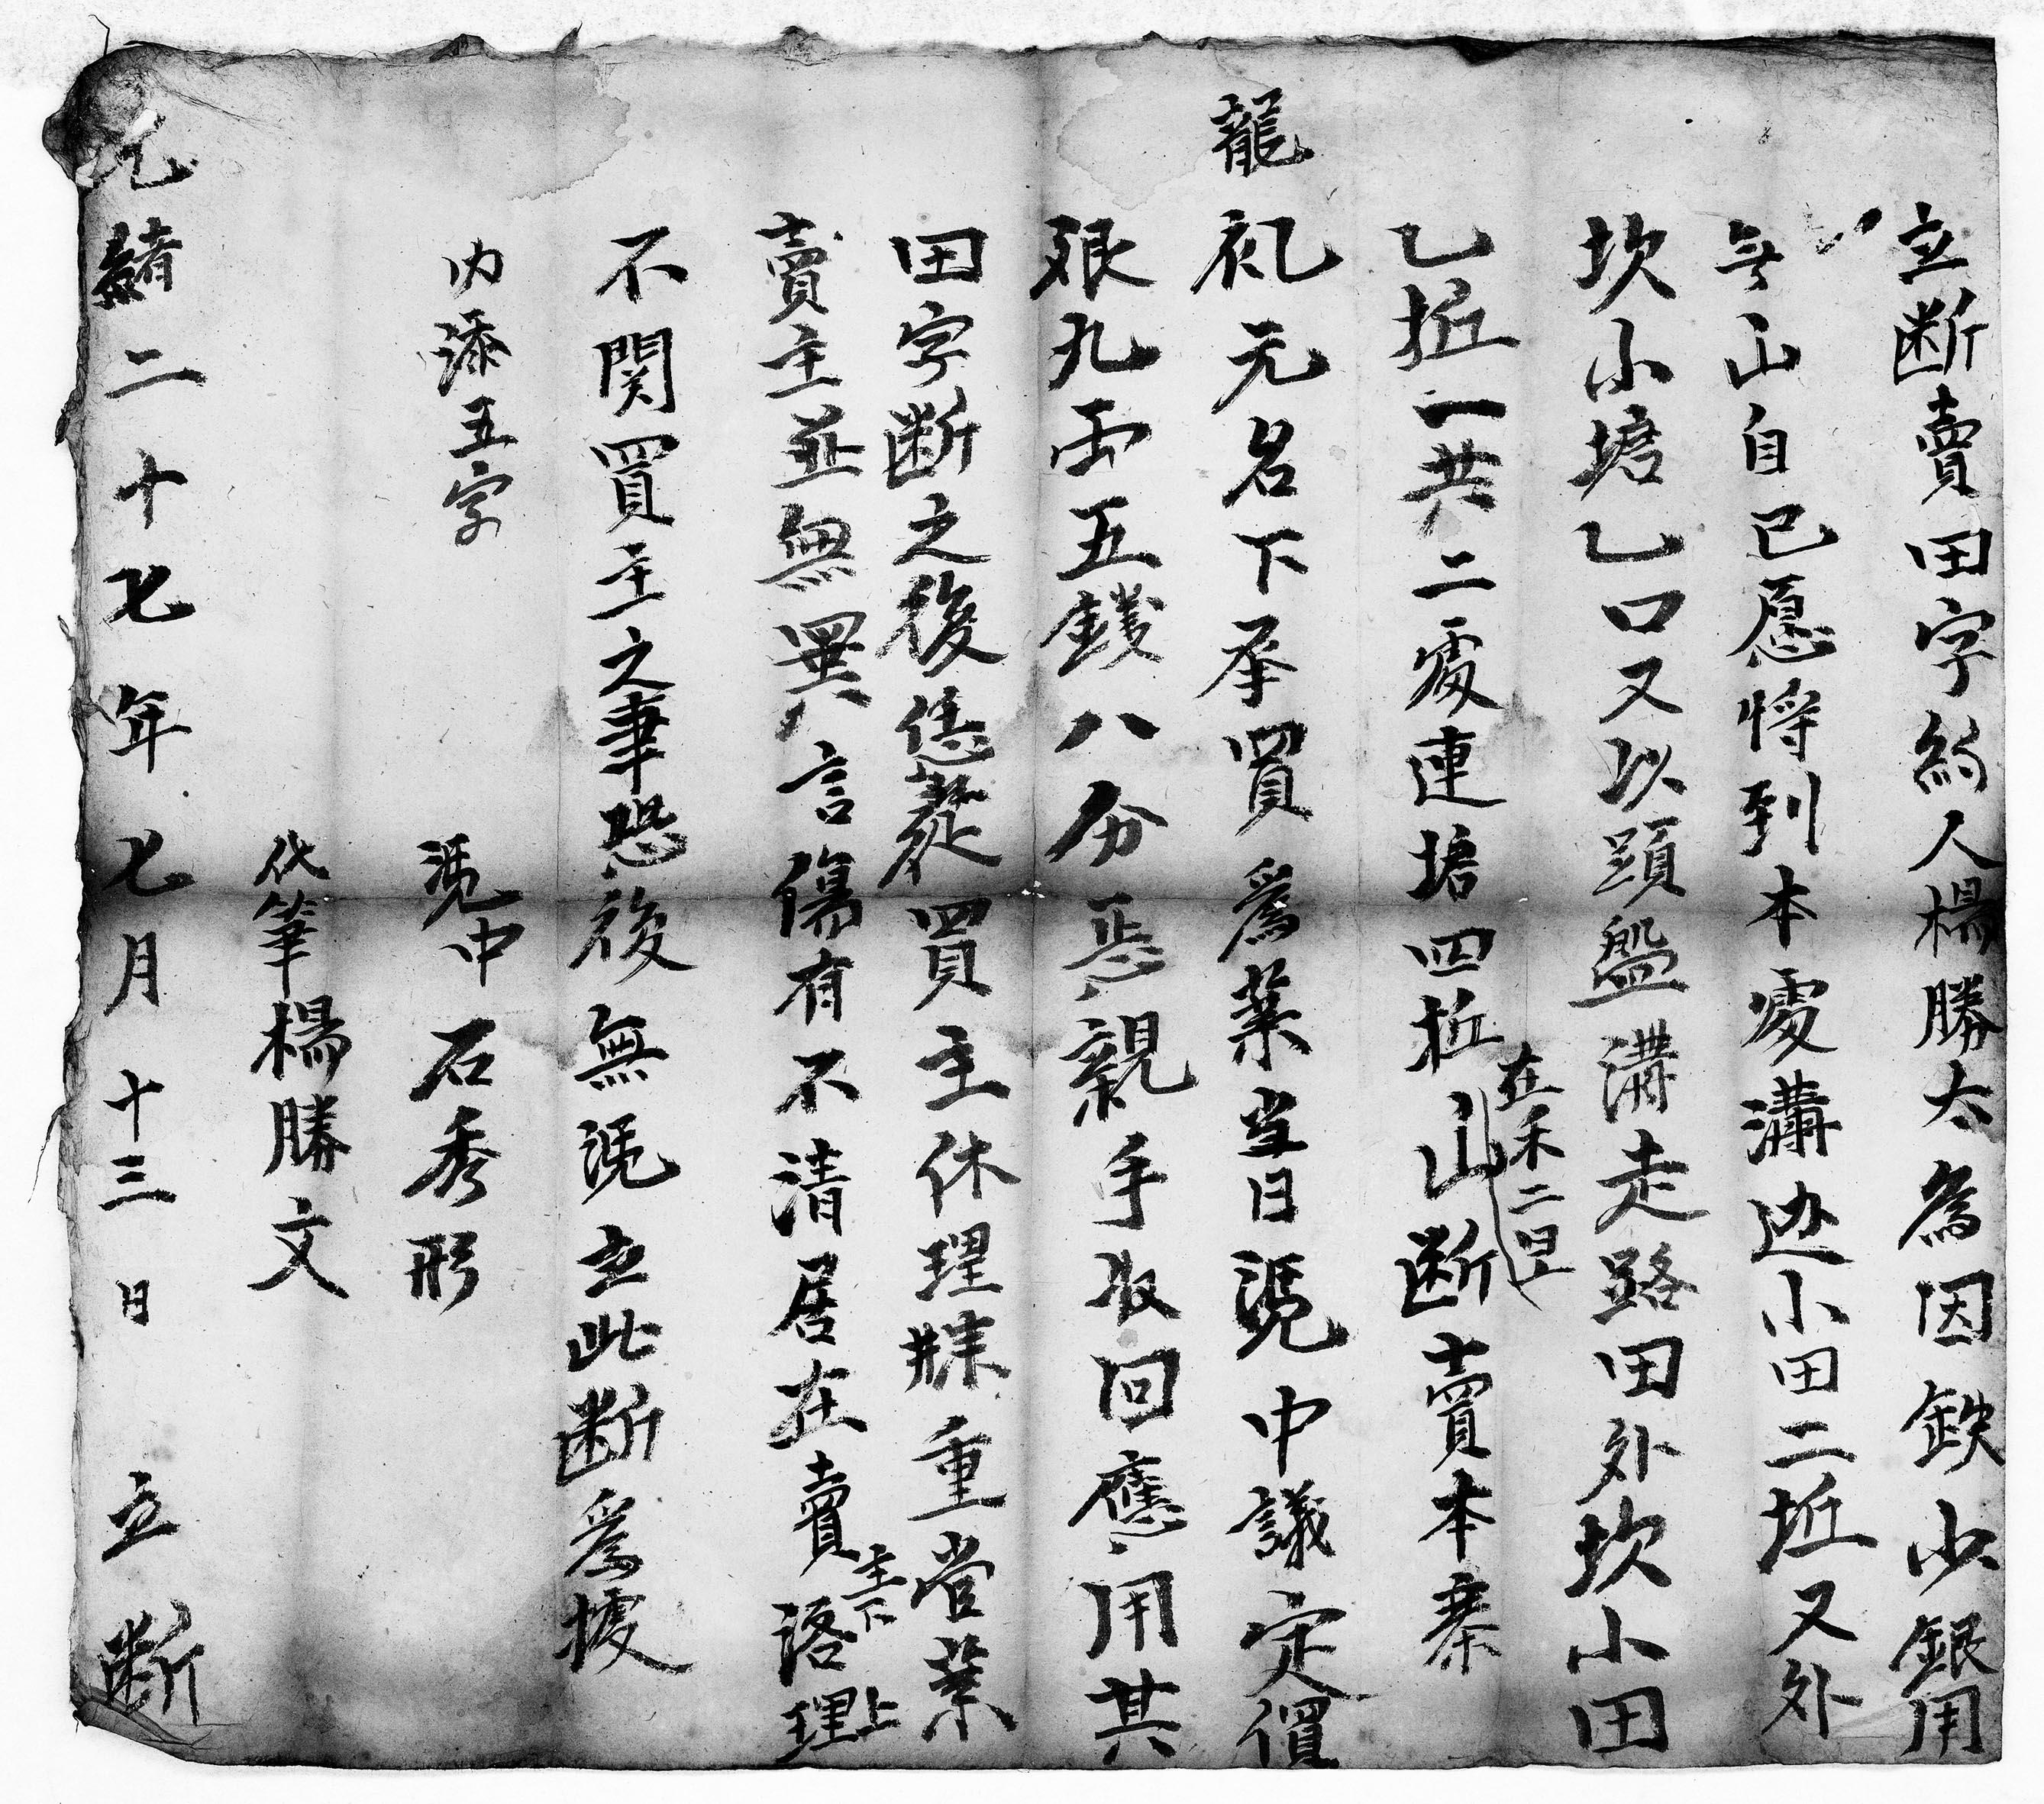 立断賣田字約人楊勝太為因鉄少銀用
無山自己愿將到本處溝边小田二坵又外
坎小塘乙口又以頭盤溝走路田外坎小田
乙坵一共二處連塘四坵山断賣本寨
在禾二
龍礼元名下承買為業当日凴中議定價
艮九両五錢八分 親手收回應用其
田字断之後恁從買主休理耕重营業
賣主並無異言倘有不清居在賣落理
主下上
不関買主之事恐後無凴立此断為據
内添五字
凴中石秀形
代筆楊勝文
光緒二十七年七月十三日 立断